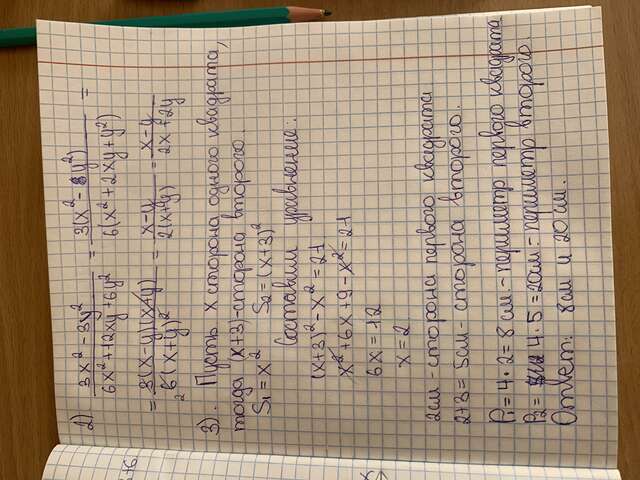 2) 3x² - 3y² / 6x² + 12xy + 6y² = 3(x² - y²) / 6(x² + 2xy + y²) =
= 3(x-y)(x+y) / 6(x+y)² = x-y / 2(x+y) = x-y / 2x+2y
2
3). Пусть x сторона одного квадрата,
тогда (x+3)-сторона второго.
S₁ = x² S₂ = (x+3)²
Составим уравнение:
(x+3)² - x² = 21
x² + 6x + 9 - x² = 21
6x = 12
x = 2
2см - сторона первого квадрата
2+3=5см - сторона второго.
P₁ = 4 · 2 = 8 см - периметр первого квадрата
P₂ = 4 · 5 = 20см - периметр второго.
Ответ: 8см и 20 см.